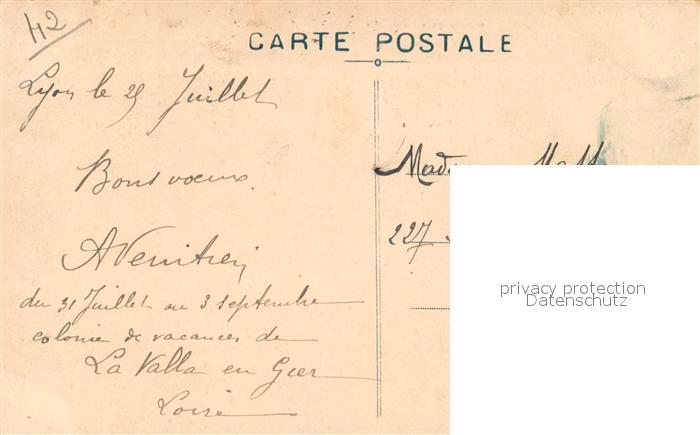 42
CARTE POSTALE
Lyon le 29 Juillet
Bons voeux.
du 31 Juillet au 3 septembre
colonie de vacances de
La Valla en Gier
Loire
227
privacy protection
Datenschutz